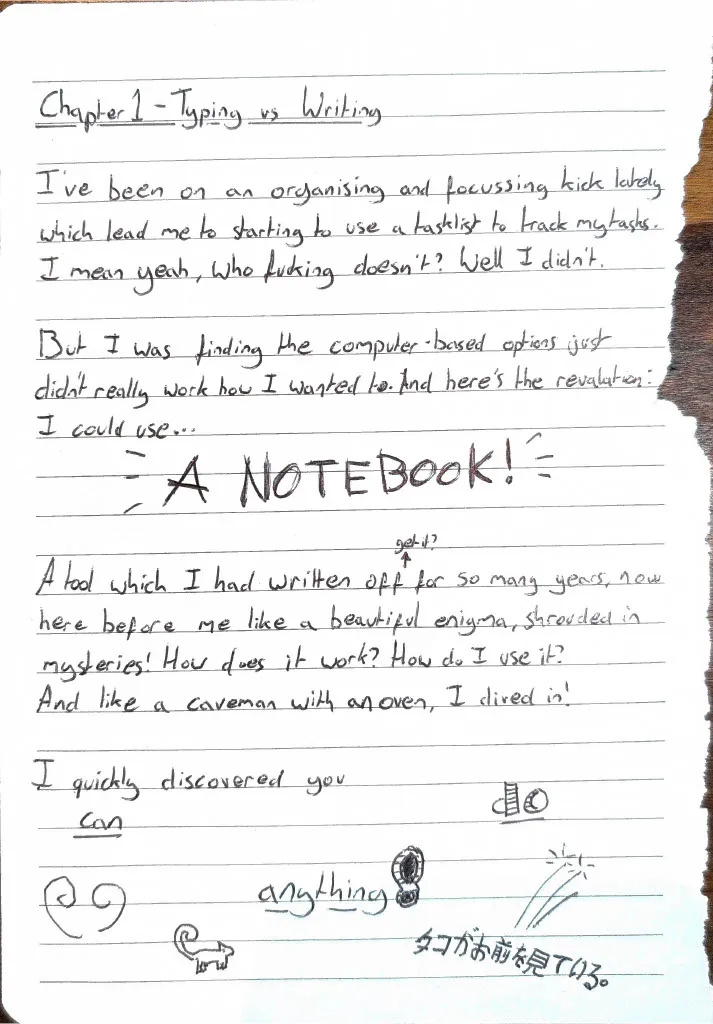 Chapter 1 - Typing vs Writing
I've been on an organising and focussing kick lately
which lead me to starting to use a tasklist to track my tasks.
I mean yeah, who fucking doesn't? Well I didn't.
But I was finding the computer-based options just
didn't really work how I wanted to. And here's the revalation:
I could use...
A NOTEBOOK!
get it?
A tool which I had written off for so many years, now
here before me like a beautiful enigma, shrouded in
mysteries! How does it work? How do I use it?
And like a caveman with an oven, I dived in!
I quickly discovered you
can
do
anything!
タコがお前を見ている。